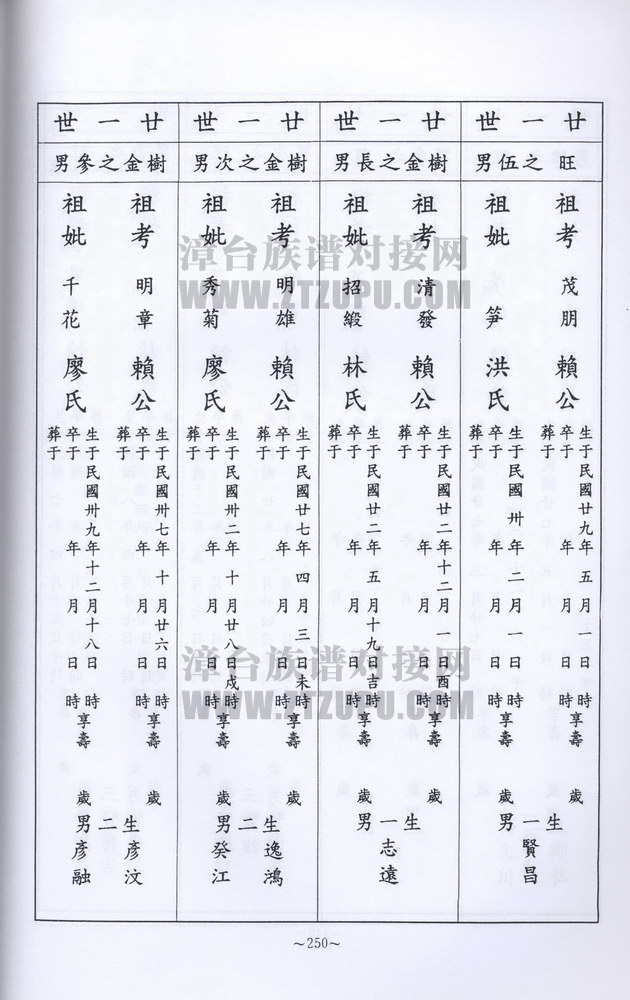 廿一世
旺之伍男
祖考 茂朋 賴公
生于民國廿九年五月一日時
卒于年月日時享壽歲
葬于
祖妣 笋 洪氏
生于民國卅年二月一日時
卒于年月日時享壽歲
葬于
生一男
賢昌
廿一世
樹金之長男
祖考 清發 賴公
生于民國廿二年十二月一日酉時
卒于年月日時享壽歲
葬于
祖妣 招緞 林氏
生于民國廿二年五月十九日吉時
卒于年月日時享壽歲
葬于
生一男
志遠
廿一世
樹金之次男
祖考 明雄 賴公
生于民國廿七年四月三日未時
卒于年月日時享壽歲
葬于
祖妣 秀菊 廖氏
生于民國卅二年十月廿八日戌時
卒于年月日時享壽歲
葬于
生二男
逸鴻
癸江
廿一世
樹金之參男
祖考 明章 賴公
生于民國卅七年十月廿六日時
卒于年月日時享壽歲
葬于
祖妣 千花 廖氏
生于民國卅九年十二月十八日時
卒于年月日時享壽歲
葬于
生二男
彥汶
彥融
～250～
漳台族谱对接网
WWW.ZTZUPU.COM
漳台族谱对接网
WWW.ZTZUPU.COM